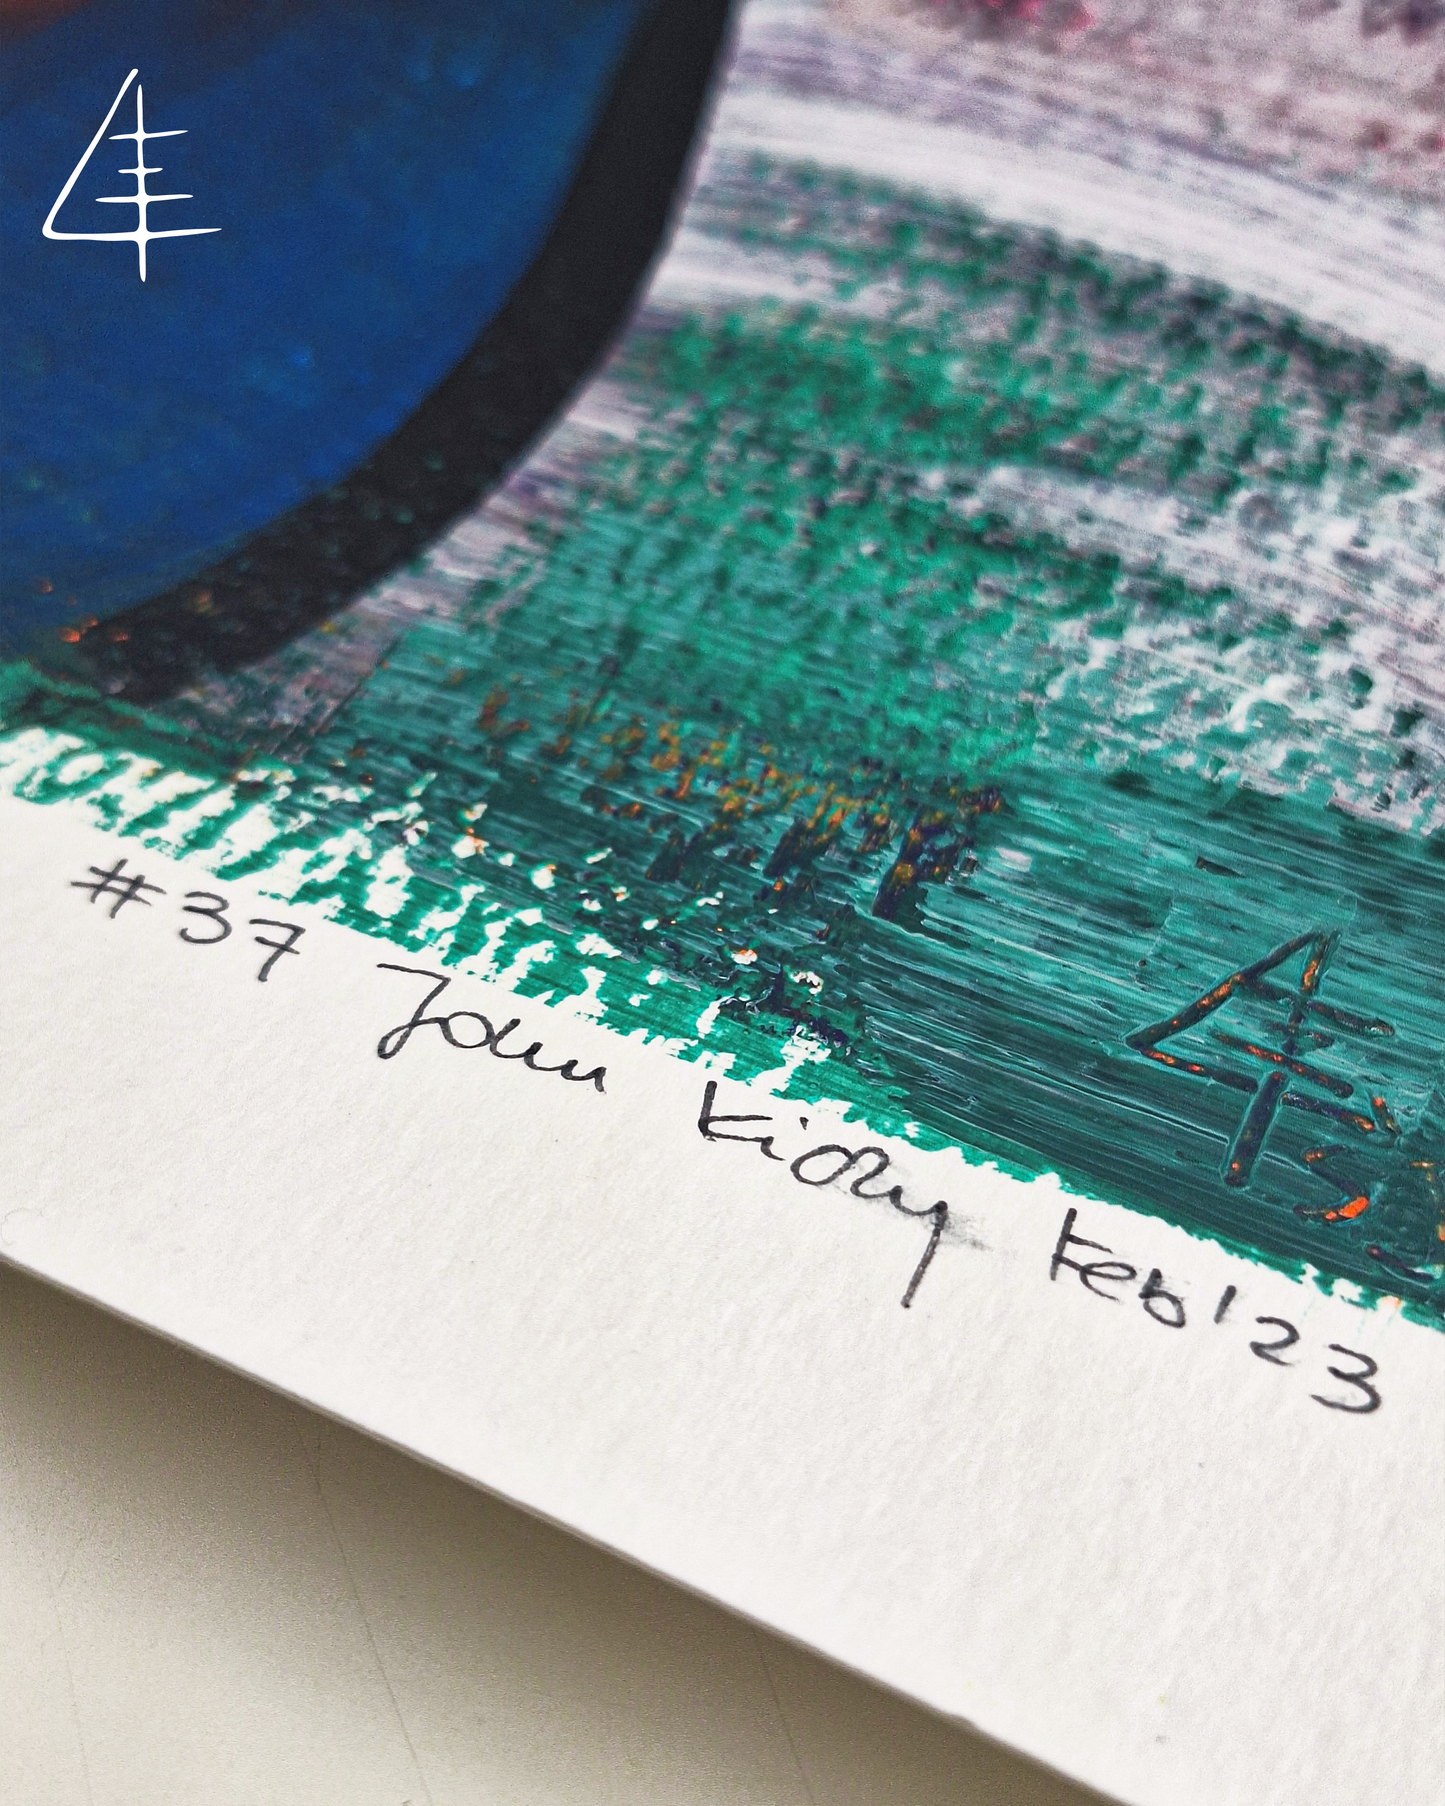 #37 John Kiory Feb'23